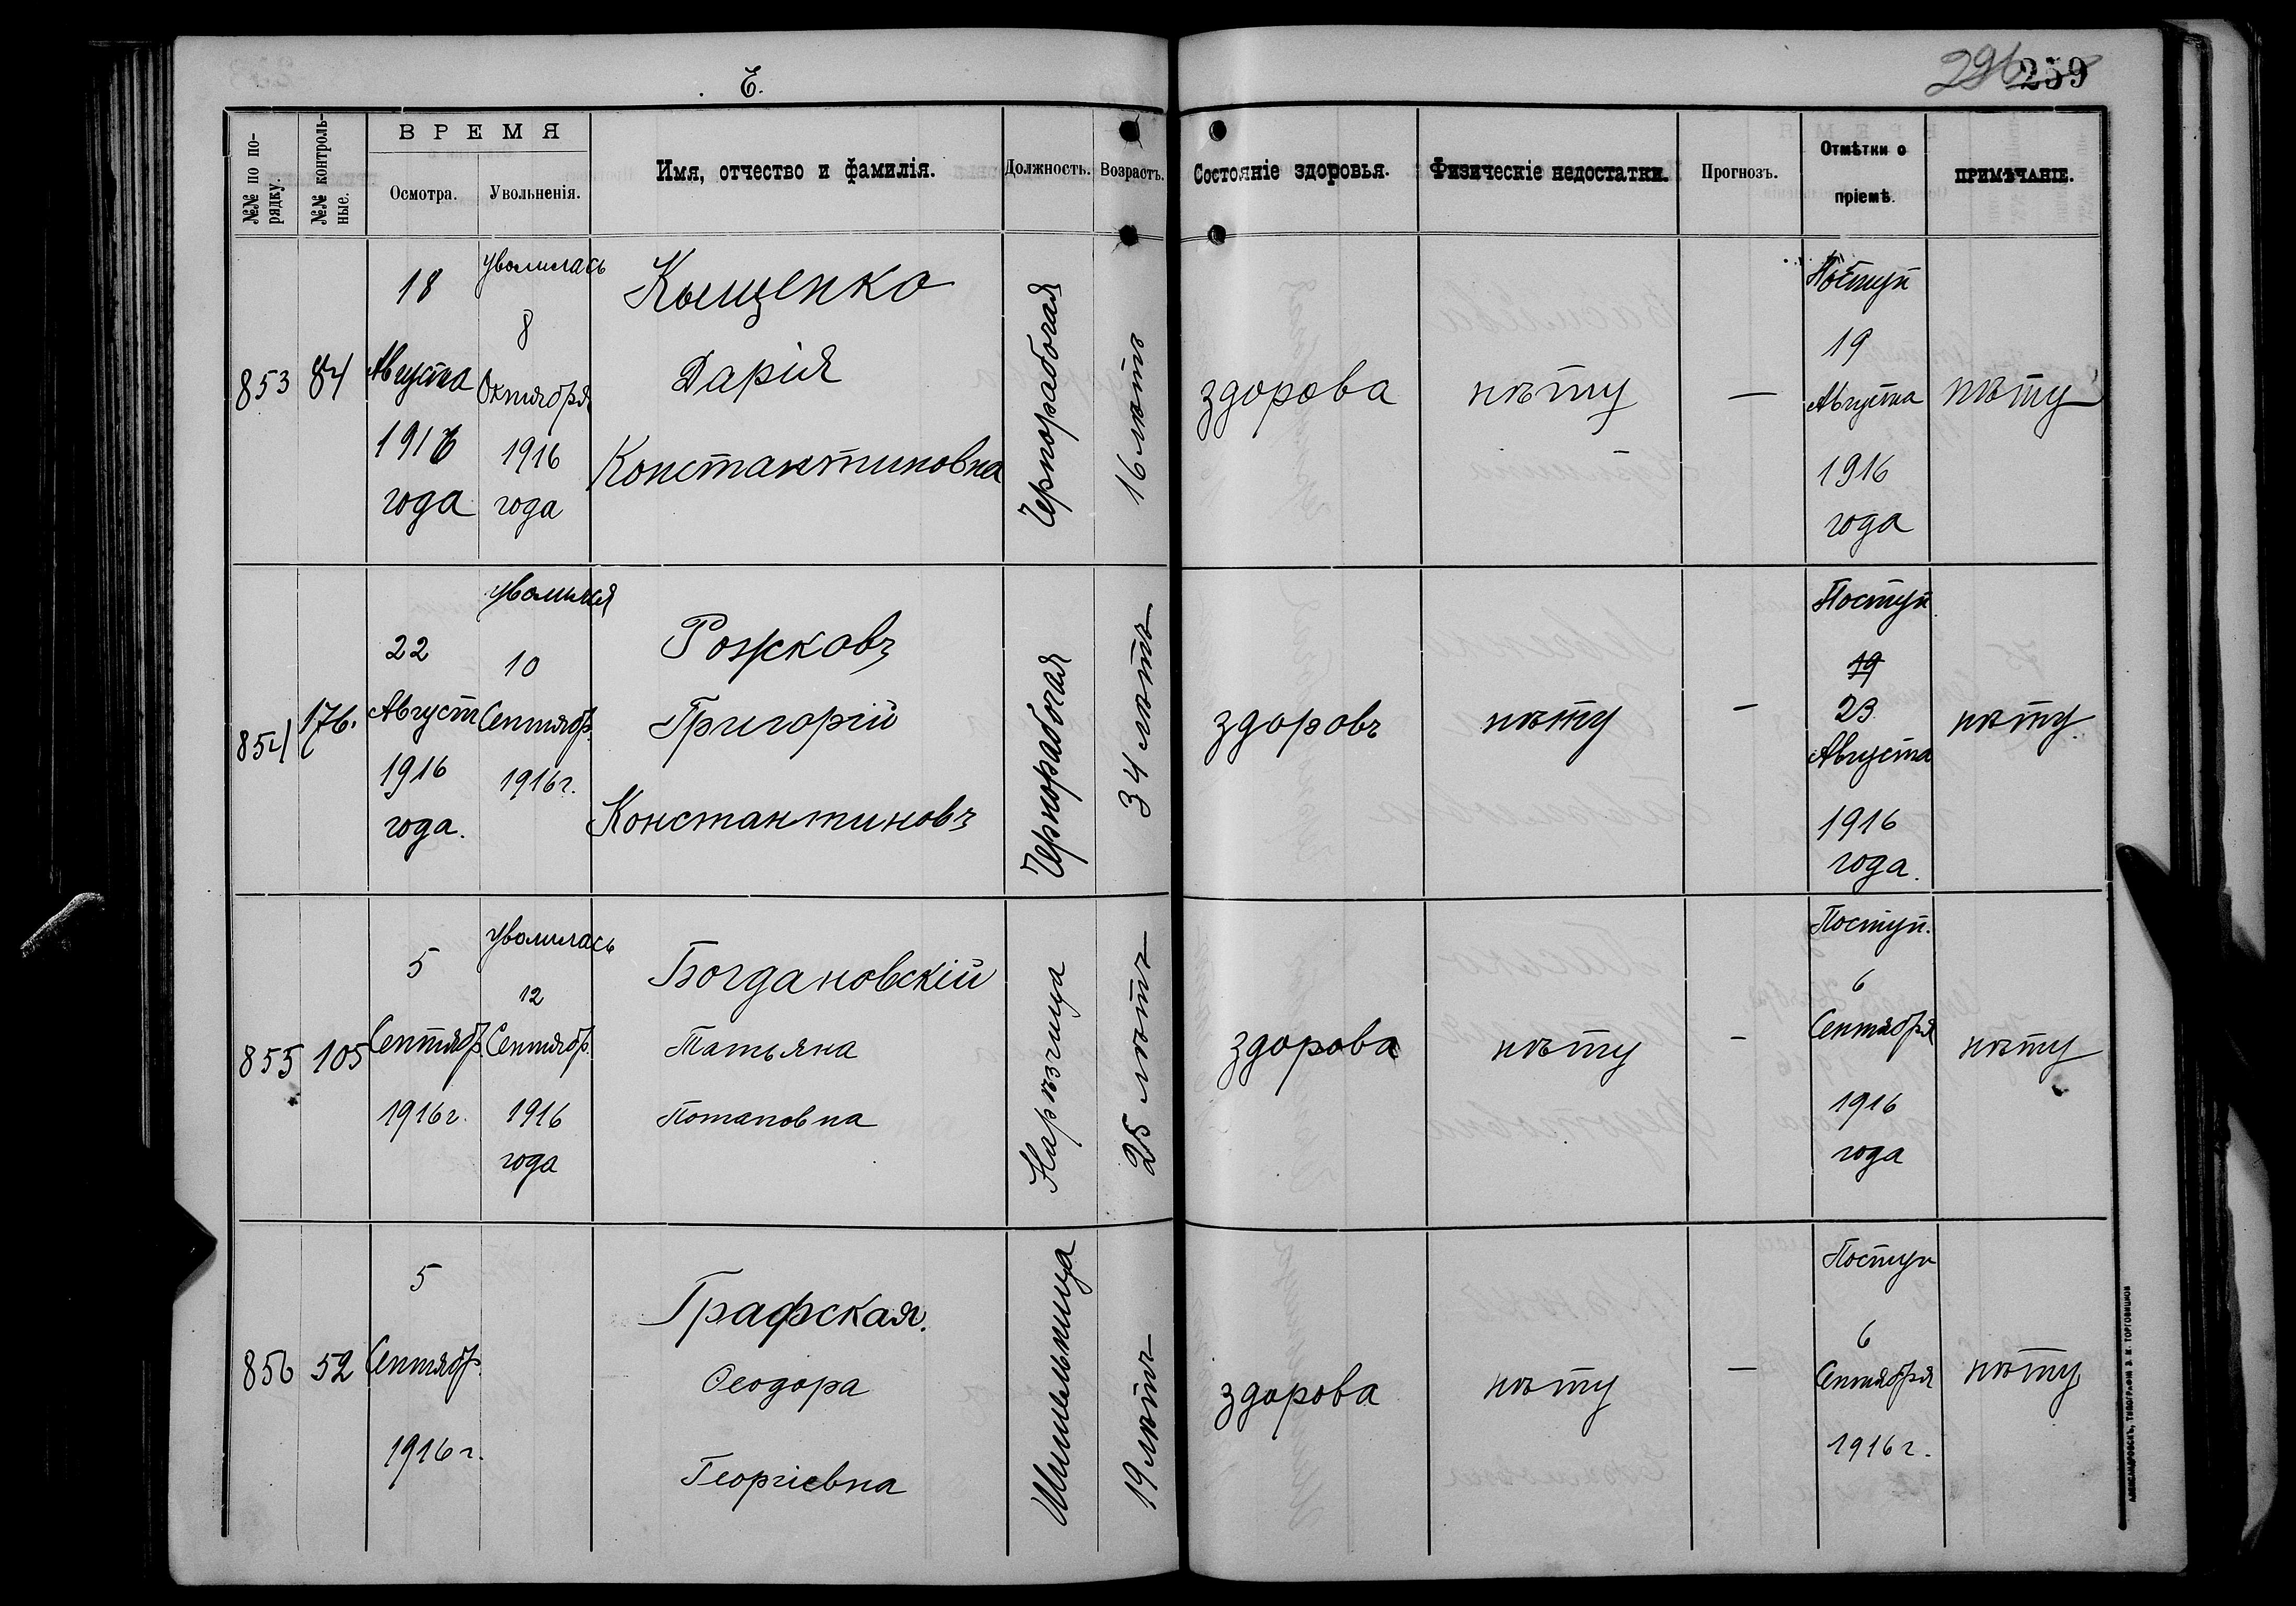 Е.
296 259
№№ по по-
рядку.
№№ контроль-
ные.
ВРЕМЯ
Осмотра.
Увольненія.
Имя, отчество и фамилія.
Должность.
Возрастъ.
Состояніе здоровья.
Физическіе недостатки.
Прогнозъ.
Отмѣтки о
пріемѣ.
ПРИМѢЧАНІЕ.
853
84
18
Августа
1916
года
уволилась
8
Октября
1916
года
Кыщенко
Дарія
Константиновна
Чернорабочая
16 лѣтъ
здорова
нѣту
—
Поступ
19
Августа
1916
года
нѣту
854
176.
22
Август
1916
года.
уволился
10
Сентябр.
1916 г.
Рожковъ
Григорій
Константиновъ
Чернорабочая
34 лѣтъ
здоровъ
нѣту
—
Поступ.
19
23
Августа
1916
года.
нѣту
855
105
5
Сентябр.
1916 г.
уволилась
12
Сентябр.
1916
года
Богдановскій
Татьяна
Потаповна
Нарѣзчица
25 лѣтъ
здорова
нѣту
—
Поступ.
6
Сентября
1916
года
нѣту
856
52
5
Сентябр.
1916 г.
Графская.
Ѳеодора
Георгіевна
Шпильница
19 лѣтъ
здорова
нѣту
—
Поступ
6
Сентября
1916 г.
нѣту